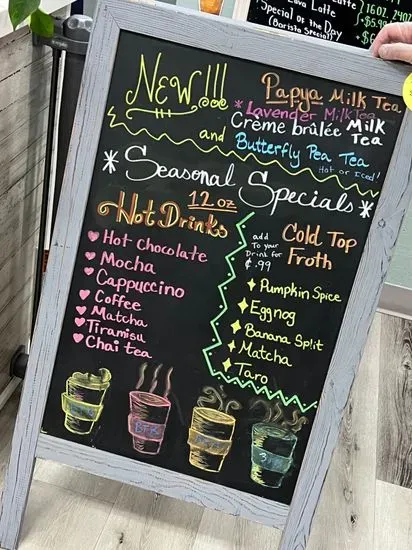 Lava Latte
Special of the Day
(Barista Special)
16oz 24oz
$5.99
NEW!!!
Papya Milk Tea
* Lavender Milk Tea
Crème brûlée Milk Tea
and Butterfly Pea Tea
Hot or Iced!
* Seasonal Specials *
12oz
Hot Drinks
♥ Hot Chocolate
♥ Mocha
♥ Cappuccino
♥ Coffee
♥ Matcha
♥ Tiramisu
♥ Chai tea
add To your Drink for ¢.99
Cold Top Froth
Pumpkin Spice
Eggnog
Banana Split
Matcha
Taro